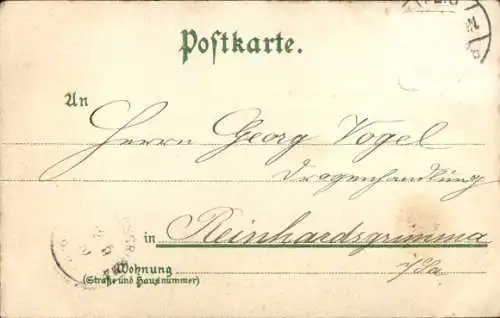 Postkarte.
An
Herrn Georg Vogel
Drogenhandlung
in Reinhardsgrimma
Wohnung
(Straße und Hausnummer)